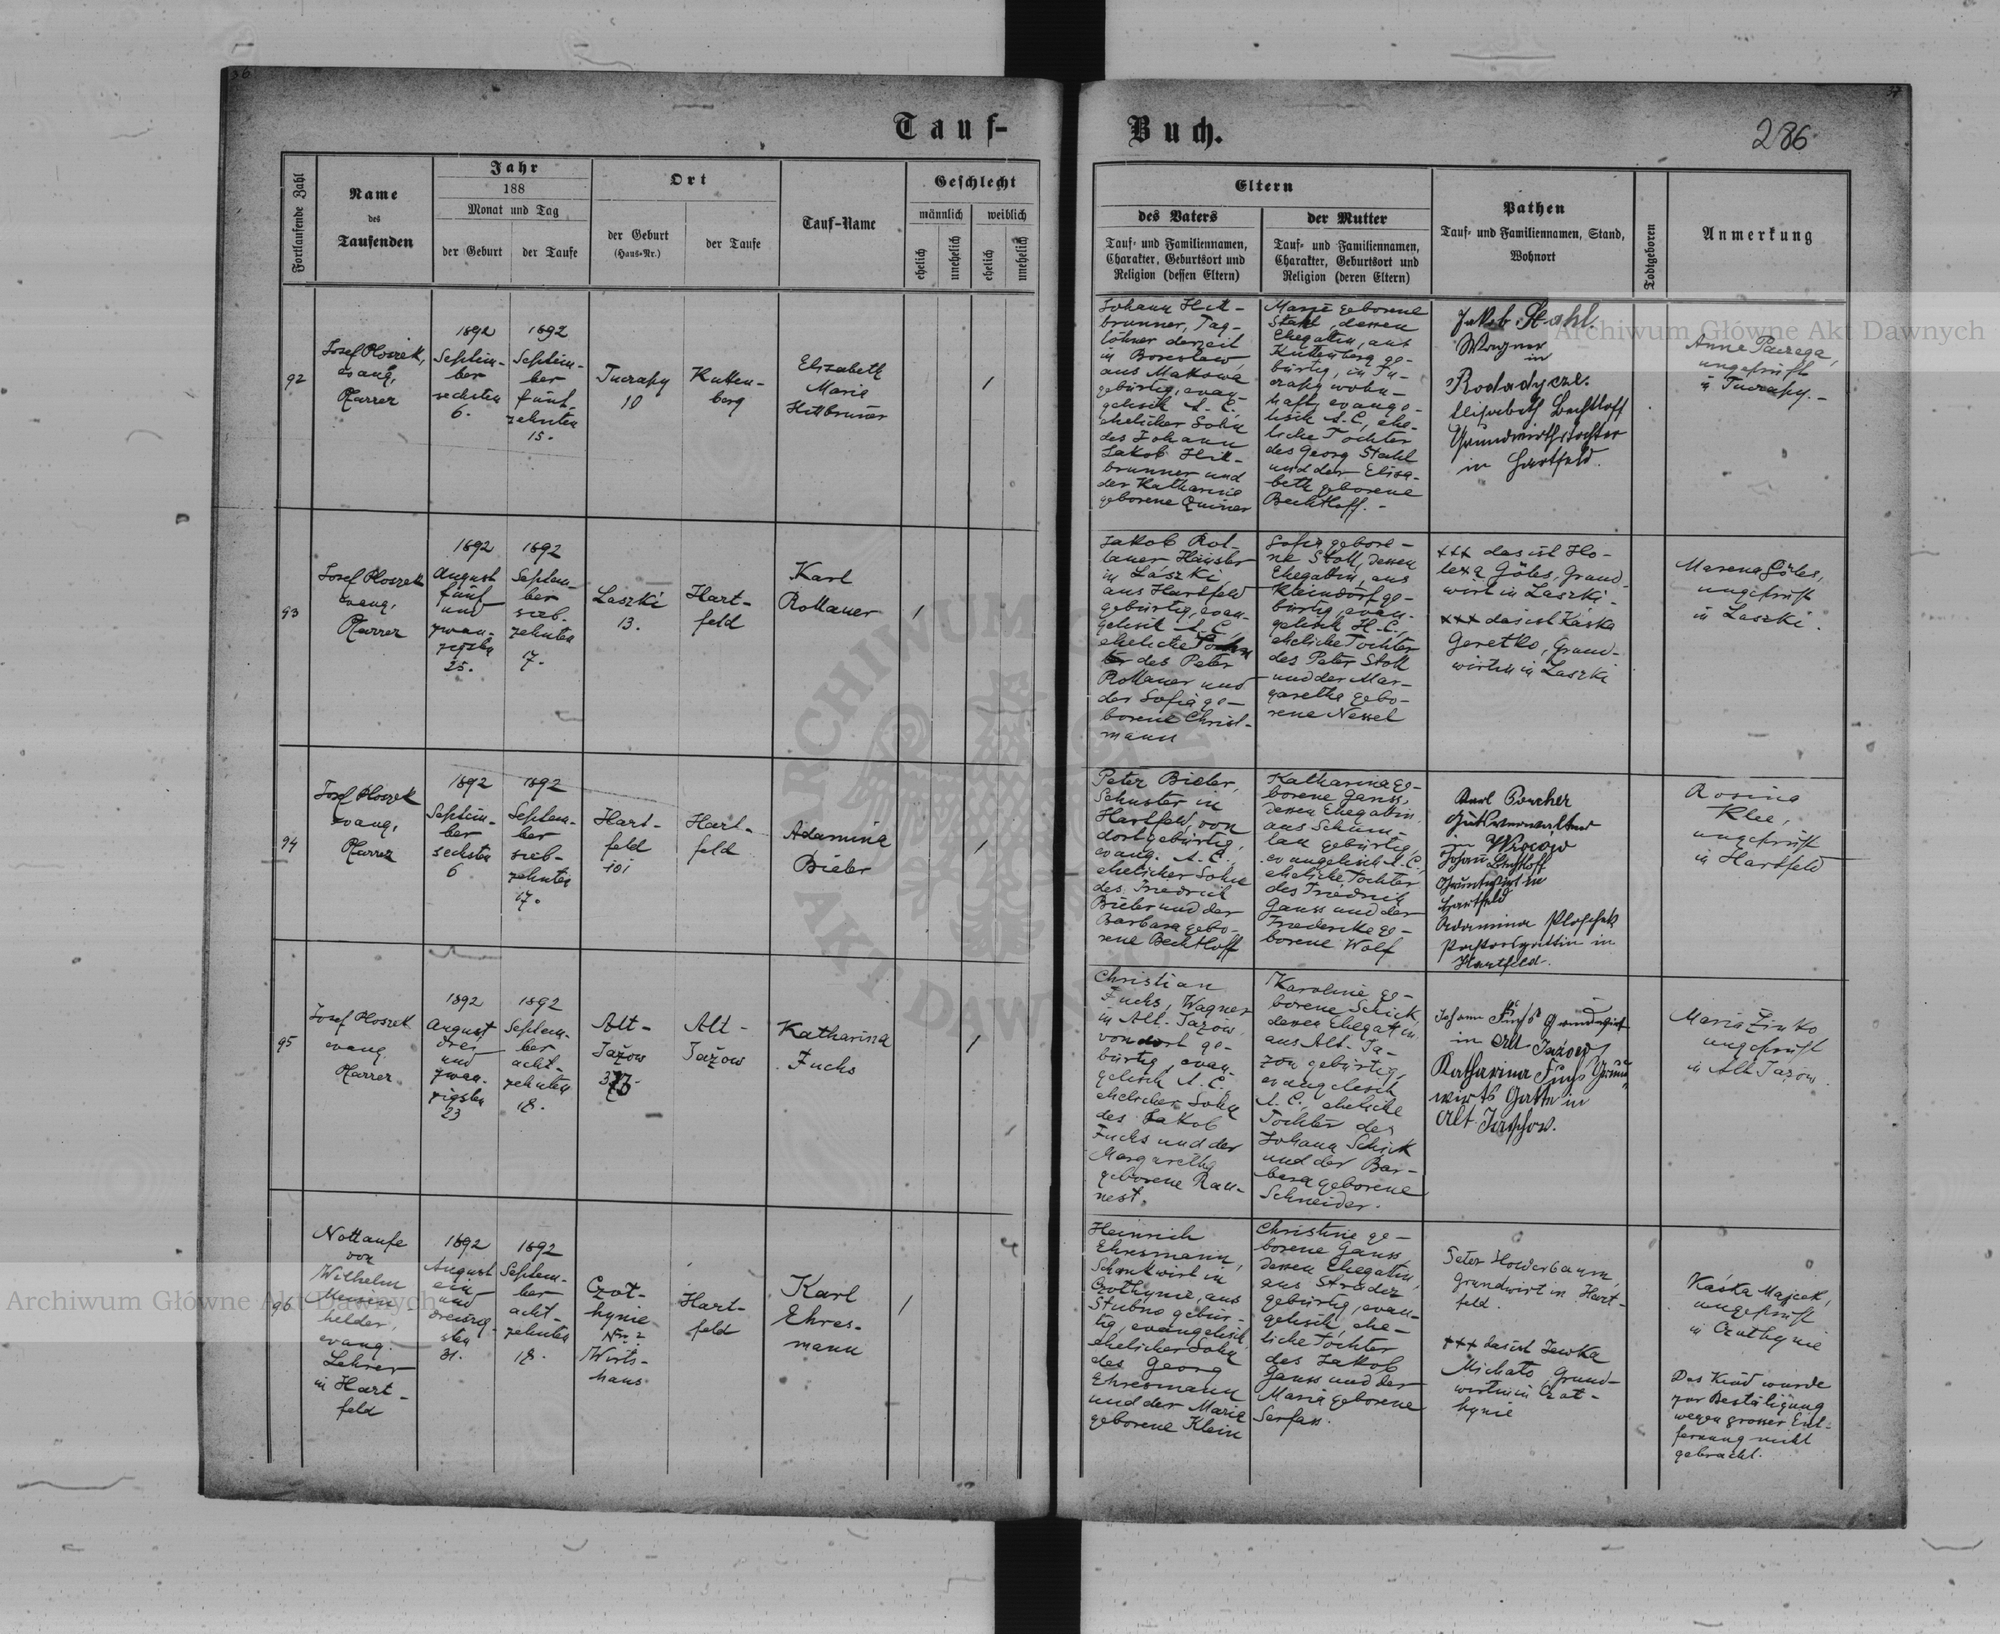 36
37
Tauf-
Buch.
286
Fortlaufende Zahl
Name
des
Taufenden
Jahr
188
Monat und Tag
der Geburt
der Taufe
Ort
der Geburt
(Haus-Nr.)
der Taufe
Tauf-Name
Geschlecht
männlich
weiblich
ehelich
unehelich
ehelich
unehelich
Eltern
des Vaters
Tauf- und Familiennamen,
Charakter, Geburtsort und
Religion (dessen Eltern)
der Mutter
Tauf- und Familiennamen,
Charakter, Geburtsort und
Religion (deren Eltern)
Pathen
Tauf- und Familiennamen, Stand,
Wohnort
Todtgeboren
Anmerkung
92
Josef Ploszek,
evang.
Pfarrer
1892
Septem-
ber
sechsten
6.
1892
Septem-
ber
fünf-
zehnten
15.
Tuczapy
10
Kutten-
berg
Elisabeth
Marie
Hittbrunner
1
Johann Hitt-
brunner, Tag-
löhner derzeit
in Boresław
aus Makowa
gebürtig, evan-
gelisch A. C.
ehelicher Sohn
des Johann
Jakob Hitt-
brunner und
der Katharina
geborene Quirier
Marie geborene
Stahl, dessen
Ehegattin, aus
Kuttenberg ge-
bürtig, in Tu-
czapy wohn-
haft, evange-
lisch A. C., ehe-
liche Tochter
des Georg Stahl
und der Elisa-
beth geborene
Bechtloff. -
Jakob Stahl.
Wagner
in
Rodadycze.
Elisabeth Bechtloff
Grundwirthstochter
in Hartfeld.
Anne
ungeprüft
in Tuczapy. -
93
Josef Ploszek
evang.
Pfarrer
1892
August
fünf
und
zwan-
zigsten
25.
1892
Septem-
ber
sieb-
zehnten
17.
Laszki
13.
Hart-
feld
Karl
Rollauer
1
Jakob Rol-
lauer Häusler
in Łaszki,
aus Hartfeld
gebürtig, evan-
gelisch A. C.
eheliche
des Peter
Rollauer und
der Sofia ge-
borene Christ-
mann
Sofie gebore-
ne Stoll, dessen
Ehegattin, aus
Kleindorf ge-
bürtig, evan-
gelisch H. C.
eheliche Tochter
des Peter Stoll
und der Mar-
garetha gebo-
rene Nessel
+++ das ist Ho-
lexa Göles, Grund-
wirt in Laszki.
+++ das ist Káska
Geretko, Grund-
wirtin in Laszki
Marena Göles,
ungeprüft
in Laszki.
94
Josef Ploszek
evang.
Pfarrer
1892
Septem-
ber
sechsten
6
1892
Septem-
ber
sieb-
zehnten
17.
Hart-
feld
101
Hart-
feld
Adamina
Bieler
1
Peter Bieler,
Schuster in
Hartfeld, von
dort gebürtig,
evang. A. C.
ehelicher Sohn
des Friedrich
Bieler und der
Barbara gebo-
rene Bechtloff
Katharina ge-
borene Ganss,
dessen Ehegattin,
aus Schum-
lau gebürtig,
evangelisch A. C.,
eheliche Tochter
des Friedrich
Ganss und der
Friedericke ge-
borene Wolf
Karl
Gutsverwalter
Johann Bechtloff
Grundwirt in
Hartfeld
Adamina Ploschek
Pastorsgattin in
Hartfeld.
Rosina
Klee,
ungeprüft
in Hartfeld
95
Josef Ploszek
evang.
Pfarrer
1892
August
drei
und
zwan-
zigsten
23
1892
Septem-
ber
acht-
zehnten
18.
Alt-
Jażow
Alt-
Jażow
Katharina
Fuchs
1
Christian
Fuchs, Wagner
in Alt-Jażow,
von dort ge-
bürtig, evan-
gelisch A. C.
ehelicher Sohn
des Jakob
Fuchs und der
Margaretha
geborene Rau-
nest.
Karoline ge-
borene Schick
deren Ehegattin,
aus Alt-Ja-
zow gebürtig,
evangelisch
A. C., eheliche
Tochter des
Johann Schick
und der Bar-
bara geborene
Schneider.
Johann Fuchs Grundwirt
in Alt Jażow
Katharina Fuchs
wirts Gattin in
Alt Jaschow.
Maria Zinko
ungeprüft
in Alt Jażow.
96
Nottaufe
von
Wilhelm
Mensin-
helder,
evang.
Lehrer
in Hart-
feld
1892
August
ein
und
dreissig-
sten
31.
1892
Septem-
ber
acht-
zehnten
18.
Czot-
hynie
Nr. 2
Wirts-
haus
Hart-
feld
Karl
Ehres-
mann
1
Heinrich
Ehresmann,
Schankwirt in
Czothynie, aus
Stubno gebür-
tig, evangelisch,
ehelicher Sohn
des Georg
Ehresmann
und der Marie
geborene Klein
Christine ge-
borene Ganss,
dessen Ehegattin,
aus
gebürtig, evan-
gelisch, ehe-
liche Tochter
des Jakob
Ganss und der
Maria geborene
Serfass.
Peter Hollerbaum,
Grundwirt in Hart-
feld.
+++ das ist Jewka
Michato, Grund-
wirtin in Czot-
hynie
Káska Majcek,
ungeprüft
in Czothynie
Das Kind wurde
zur Bestätigung
wegen grosser Ent-
fernung nicht
gebracht.
Archiwum Główne Akt Dawnych
Archiwum Główne Akt Dawnych
ARCHIWUM
AKT DAWNYCH